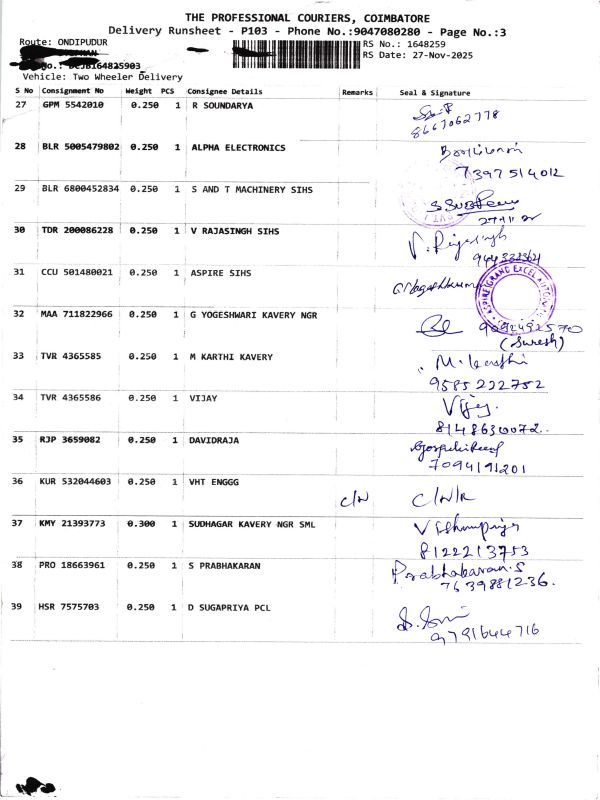 THE PROFESSIONAL COURIERS, COIMBATORE
Delivery Runsheet - P103 - Phone No.:9047080280 - Page No.:3
Route: ONDIPUDUR
RS No.: 1648259
RS Date: 27-Nov-2025
Vehicle: Two Wheeler Delivery
S No Consignment No Weight PCS Consignee Details Remarks Seal & Signature
27 GPM 5542010 0.250 1 R SOUNDARYA
8667062778
28 BLR 5005479802 0.250 1 ALPHA ELECTRONICS
7397514012
29 BLR 6800452834 0.250 1 S AND T MACHINERY SIHS
30 TDR 200086228 0.250 1 V RAJASINGH SIHS V. Rajasingh
31 CCU 501480021 0.250 1 ASPIRE SIHS
32 MAA 711822966 0.250 1 G YOGESHWARI KAVERY NGR
9092492570
(Suresh)
33 TVR 4365585 0.250 1 M KARTHI KAVERY M. Karthi
9585222752
34 TVR 4365586 0.250 1 VIJAY Vijay.
8148630072.
35 RJP 3659082 0.250 1 DAVIDRAJA
7094191201
36 KUR 532044603 0.250 1 VHT ENGGG C/N C/N/R
37 KMY 21393773 0.300 1 SUDHAGAR KAVERY NGR SML
8122213753
38 PRO 18663961 0.250 1 S PRABHAKARAN Prabhabaran.S
7639881236.
39 HSR 7575703 0.250 1 D SUGAPRIYA PCL
9791644716